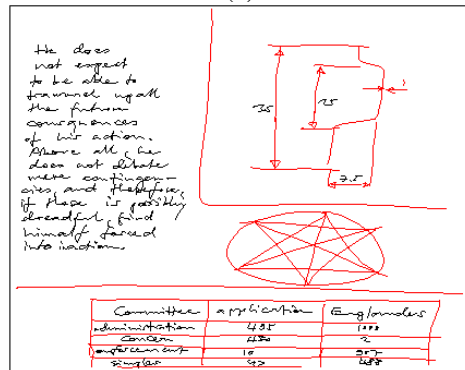 He does
not expect
to be able to
trammel up all
the future
consequences
of his action.
Above all, he
does not debate
mere contingen-
cies, and therefore,
if these is possibly
dreadful, find
himself forced
into inaction.
35
25
7.5
Committee application Englanders
administration 495
concern 480 2
enforcement 10
singles